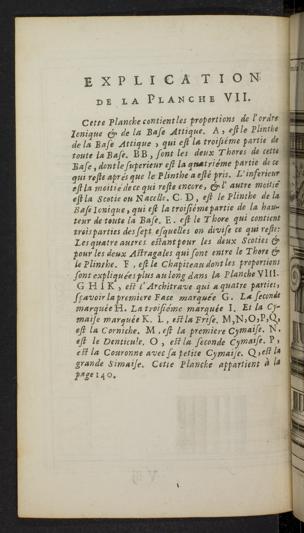 EXPLICATION
DE LA PLANCHE VII.
Cette Planche contient les proportions de l'ordre
Ionique & de la Base Attique. A, est le Plinthe
de la Base Attique, qui est la troisiéme partie de
toute la Base. BB, sont les deux Thores de cette
Base, dont le superieur est la quatriéme partie de ce
qui reste aprés que le Plinthe a esté pris. L'inferieur
est la moitié de ce qui reste encore, & l'autre moitié
est la Scotie ou Nacelle. C D, est le Plinthe de la
Base Ionique, qui est la troisiéme partie de la hau-
teur de toute la Base. E. est le Thore qui contient
trois parties des sept esquelles on divise ce qui reste:
Les quatre autres estant pour les deux Scoties &
pour les deux Astragales qui sont entre le Thore &
le Plinthe. F, est le Chapiteau dont les proportions
sont expliquées plus au long dans la Planche VIII.
GHIK, est l'Architrave qui a quatre parties,
sçavoir la premiere Face marquée G. La seconde
marquée H. La troisiéme marquée I. Et la Cy-
maise marquée K. L, est la Frise. M,N,O,P,Q,
est la Corniche. M, est la premiere Cymaise. N,
est le Denticule. O, est la seconde Cymaise. P,
est la Couronne avec sa petite Cymaise. Q, est la
grande Simaise. Cette Planche appartient à la
page 140.